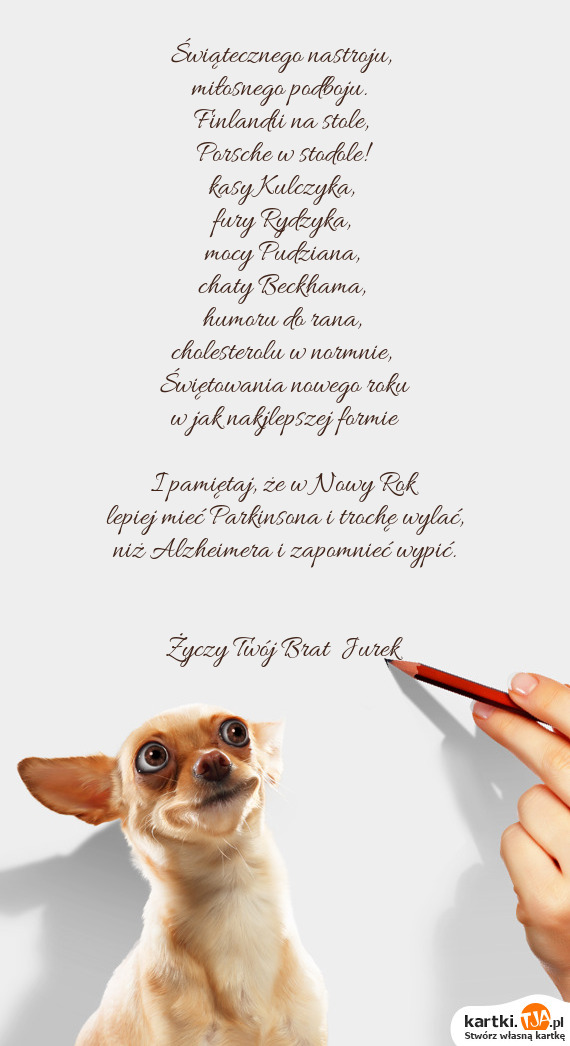 Świątecznego nastroju,
miłosnego podboju.
Finlandii na stole,
Porsche w stodole!
kasy Kulczyka,
fury Rydzyka,
mocy Pudziana,
chaty Beckhama,
humoru do rana,
cholesterolu w normnie,
Świętowania nowego roku
w jak nakjlepszej formie
I pamiętaj, że w Nowy Rok
lepiej mieć Parkinsona i trochę wylać,
niż Alzheimera i zapomnieć wypić.
Życzy Twój Brat Jurek
kartki.TJA.pl
Stwórz własną kartkę